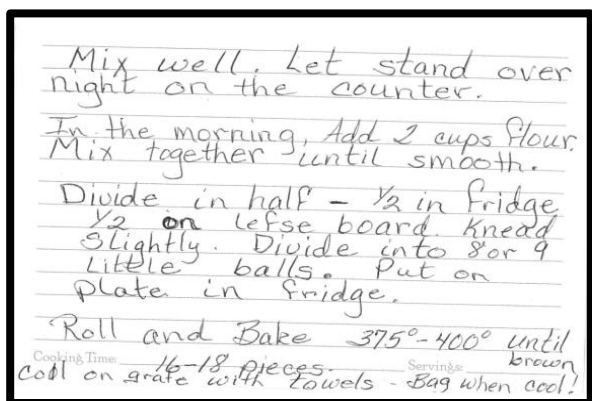 Mix well. Let stand over
night on the counter.
In the morning, Add 2 cups flour.
Mix together until smooth.
Divide in half - 1/2 in fridge
1/2 on lefse board. Knead
Slightly. Divide into 8 or 9
Little balls. Put on
plate in fridge.
Roll and Bake 375° - 400° until
brown
Cooking Time: 16-18 pieces. Servings:
Cool on grate with towels - Bag when cool!